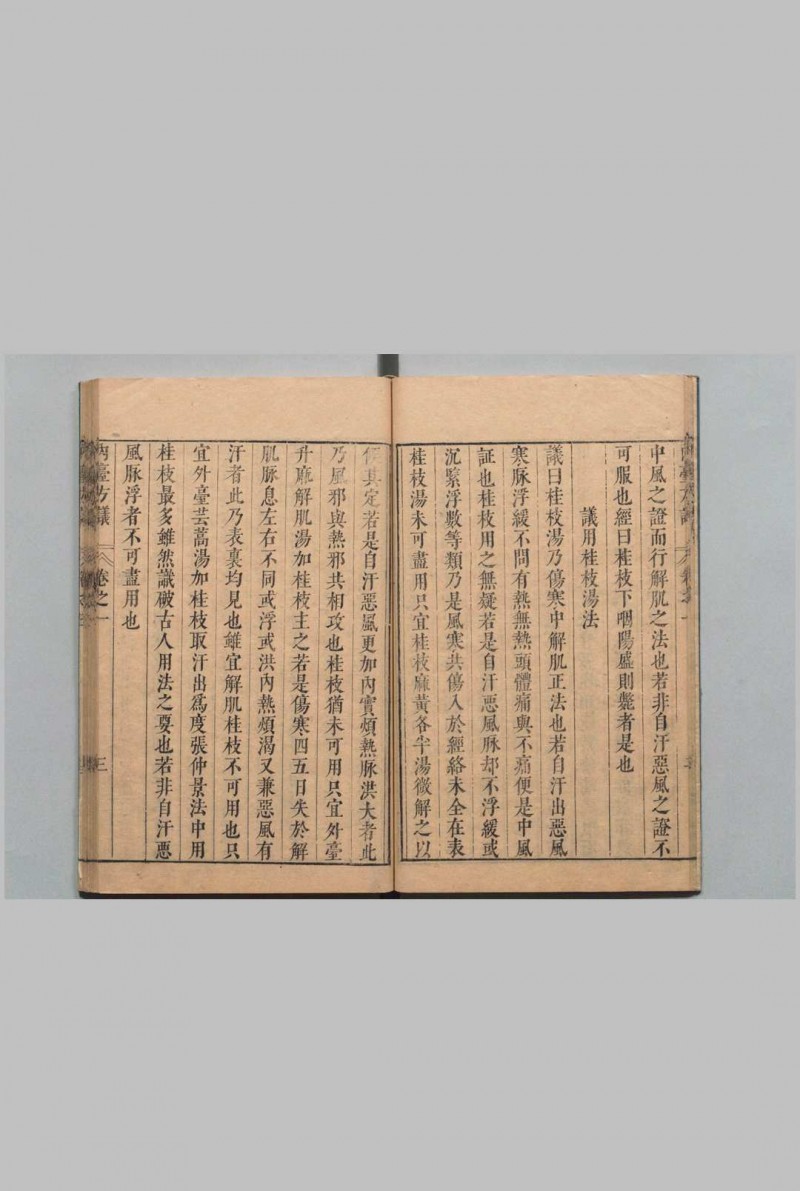 中風之證而行解肌之法也若非自汗惡風之證不
可服也經曰桂枝下咽陽盛則斃者是也
議用桂枝湯法
議曰桂枝湯乃傷寒中解肌正法也若自汗出惡風
寒脉浮緩不問有熱無熱頭體痛與不痛便是中風
証也桂枝用之無疑若是自汗惡風脉却不浮緩或
沉緊浮數等類乃是風寒共傷入於經絡未全在表
桂枝湯未可盡用只宜桂枝麻黃各半湯微解之以
其定若是自汗惡風更加內實煩熱脉洪大者此
乃風邪與熱邪共相攻也桂枝猶未可用只宜外臺
升麻解肌湯加桂枝主之若是傷寒四五日失於解
肌脉息左右不同或浮或洪內熱煩渴又兼惡風有
汗者此乃表裏均見也雖宜解肌桂枝不可用也只
宜外臺芸蒿湯加桂枝取汗出爲度張仲景法中用
桂枝最多雖然識破古人用法之要也若非自汗惡
風脉浮者不可盡用也
內臺方議 卷之一 三